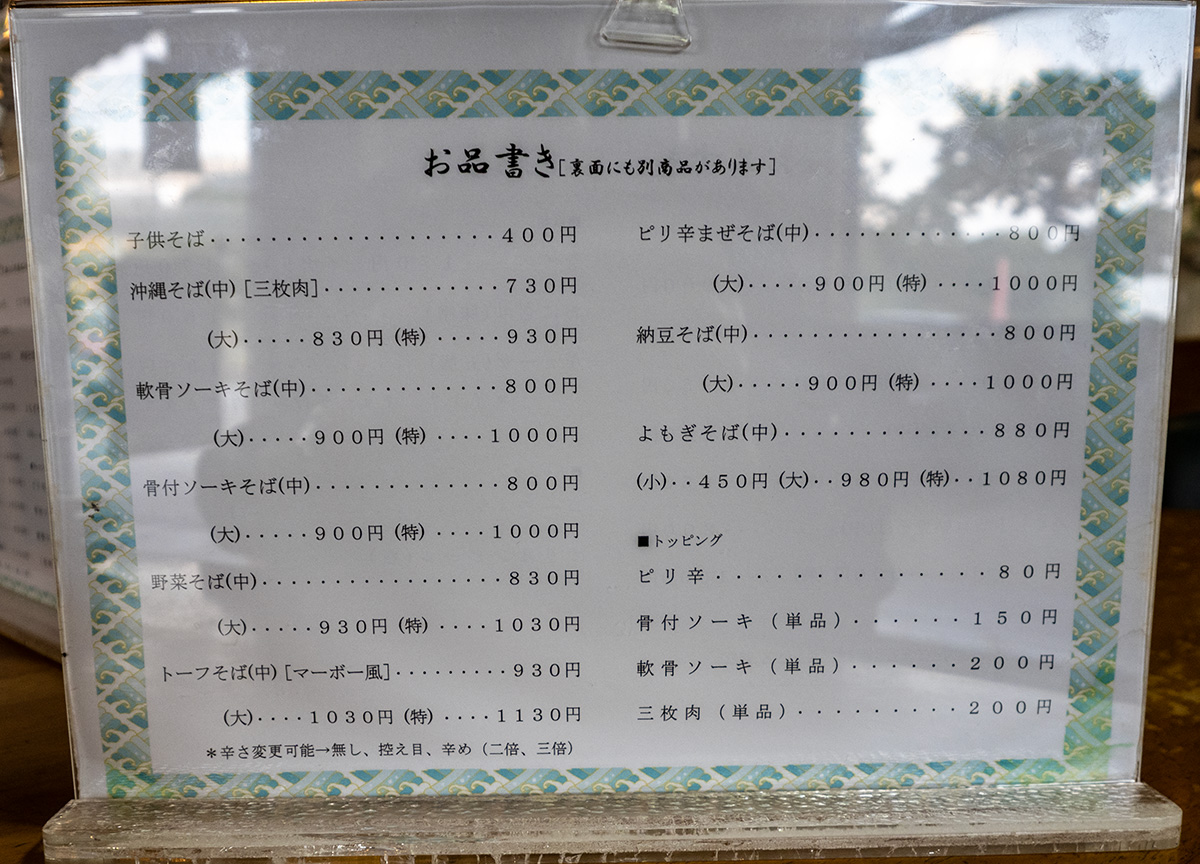 お品書き[裏面にも別商品があります]
子供そば・・・・・・・・・・・・・・・・・・・４００円
沖縄そば(中)[三枚肉]・・・・・・・・・・・・７３０円
(大)・・・・・８３０円 (特) ・・・・・９３０円
軟骨ソーキそば(中)・・・・・・・・・・・・・８００円
(大)・・・・・９００円 (特) ・・・・１０００円
骨付ソーキそば(中)・・・・・・・・・・・・・８００円
(大)・・・・・９００円 (特) ・・・・１０００円
野菜そば(中)・・・・・・・・・・・・・・・・８３０円
(大)・・・・・９３０円 (特) ・・・・１０３０円
トーフそば(中)[マーボー風]・・・・・・・・・９３０円
(大)・・・・１０３０円 (特) ・・・・１１３０円
＊辛さ変更可能→無し、控え目、辛め（二倍、三倍）
ピリ辛まぜそば(中)・・・・・・・・・・・・・８００円
(大)・・・・・９００円 (特) ・・・・１０００円
納豆そば(中)・・・・・・・・・・・・・・・・・８００円
(大)・・・・・９００円 (特) ・・・・１０００円
よもぎそば(中)・・・・・・・・・・・・・・８８０円
(小)・・４５０円 (大)・・９８０円 (特)・・１０８０円
■トッピング
ピリ辛・・・・・・・・・・・・・・８０円
骨付ソーキ（単品）・・・・・・１５０円
軟骨ソーキ（単品）・・・・・・・２００円
三枚肉（単品）・・・・・・・・・２００円